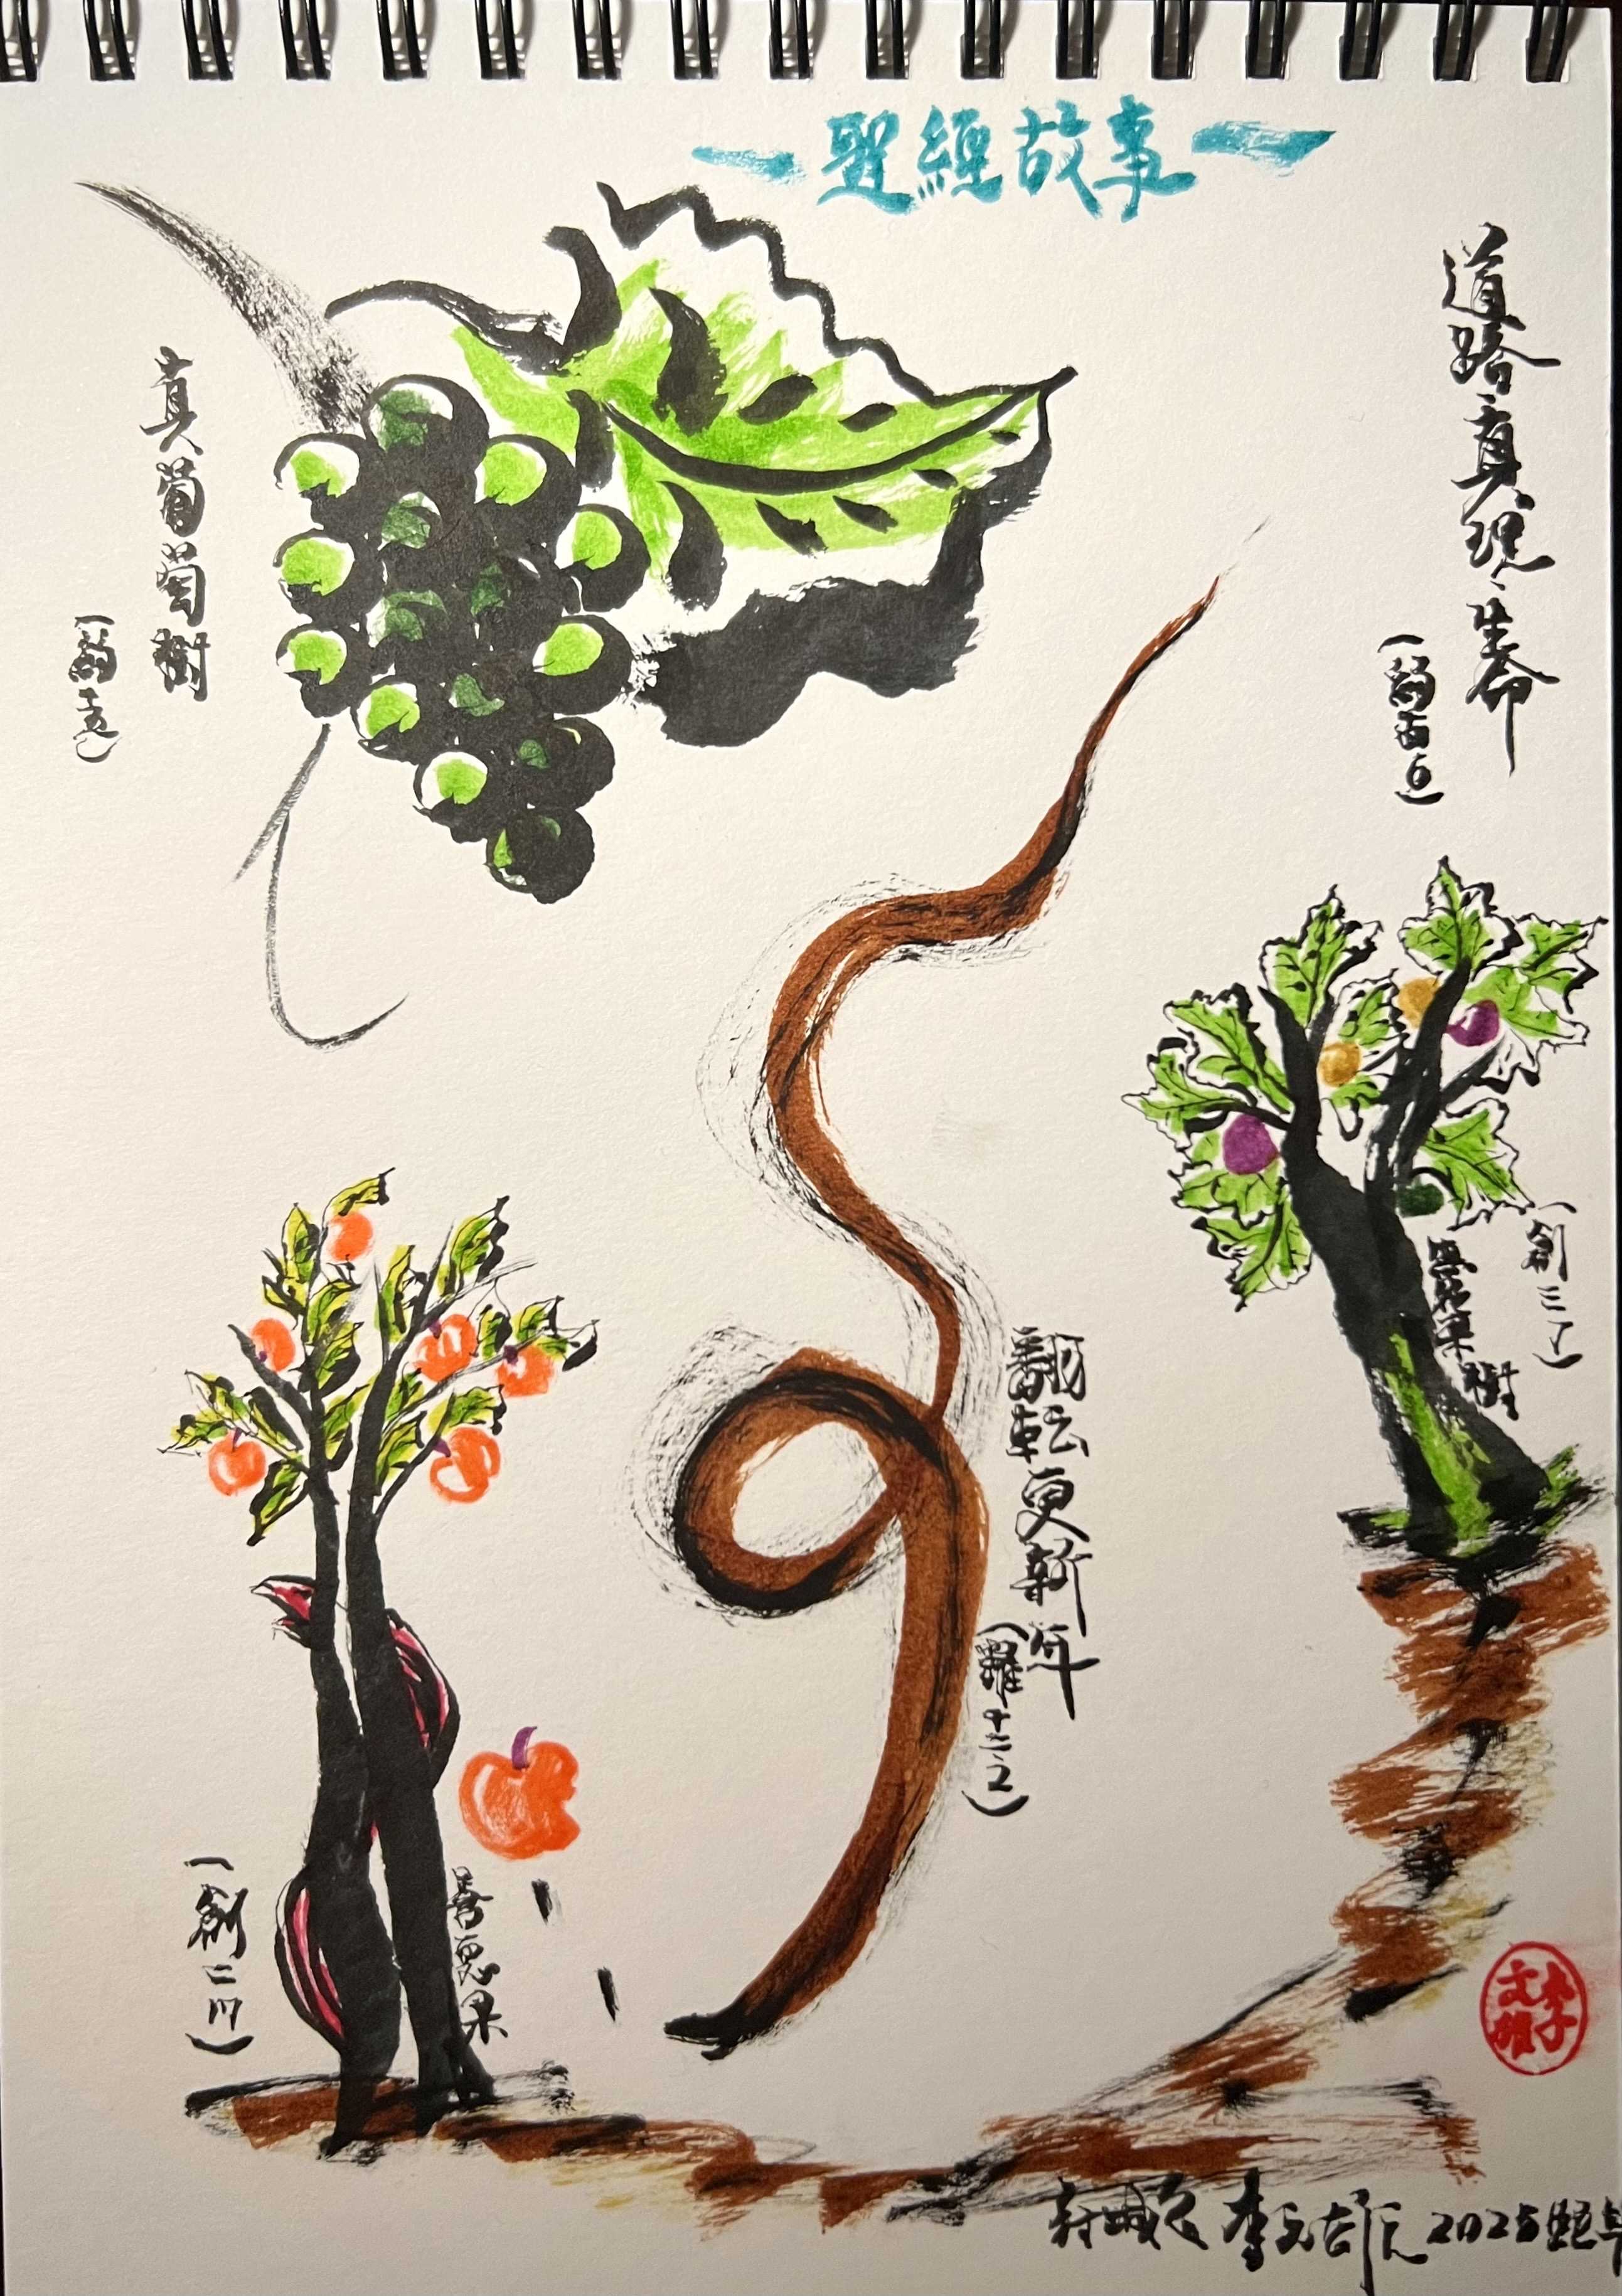 —聖經故事—
道路真理、生命
(約十四6)
真葡萄樹
(約十五)
無花果樹
(創三7)
翻転更新年
(羅十二.2)
善惡果
(創二
李文
2025蛇年